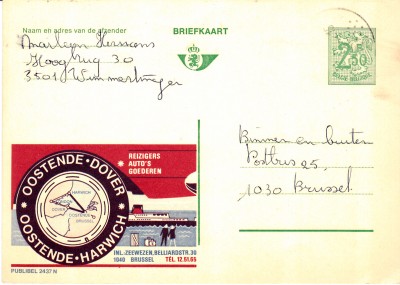 Naam en adres van de afzender
BRIEFKAART
Marleen Hermans
Hoogbrug 30
3501 Wimmertingen
2,50
BELGIE-BELGIQUE
Binnen en buiten
Postbus 25
1030 Brussel
REIZIGERS
AUTO'S
GOEDEREN
OOSTENDE·DOVER
OOSTENDE·HARWICH
HARWICH
DOVER
OOSTENDE
BRUSSEL
INL.-ZEEWEZEN, BELLIARDSTR. 30
1040 BRUSSEL TEL. 12.51.65
PUBLIBEL 2437 N